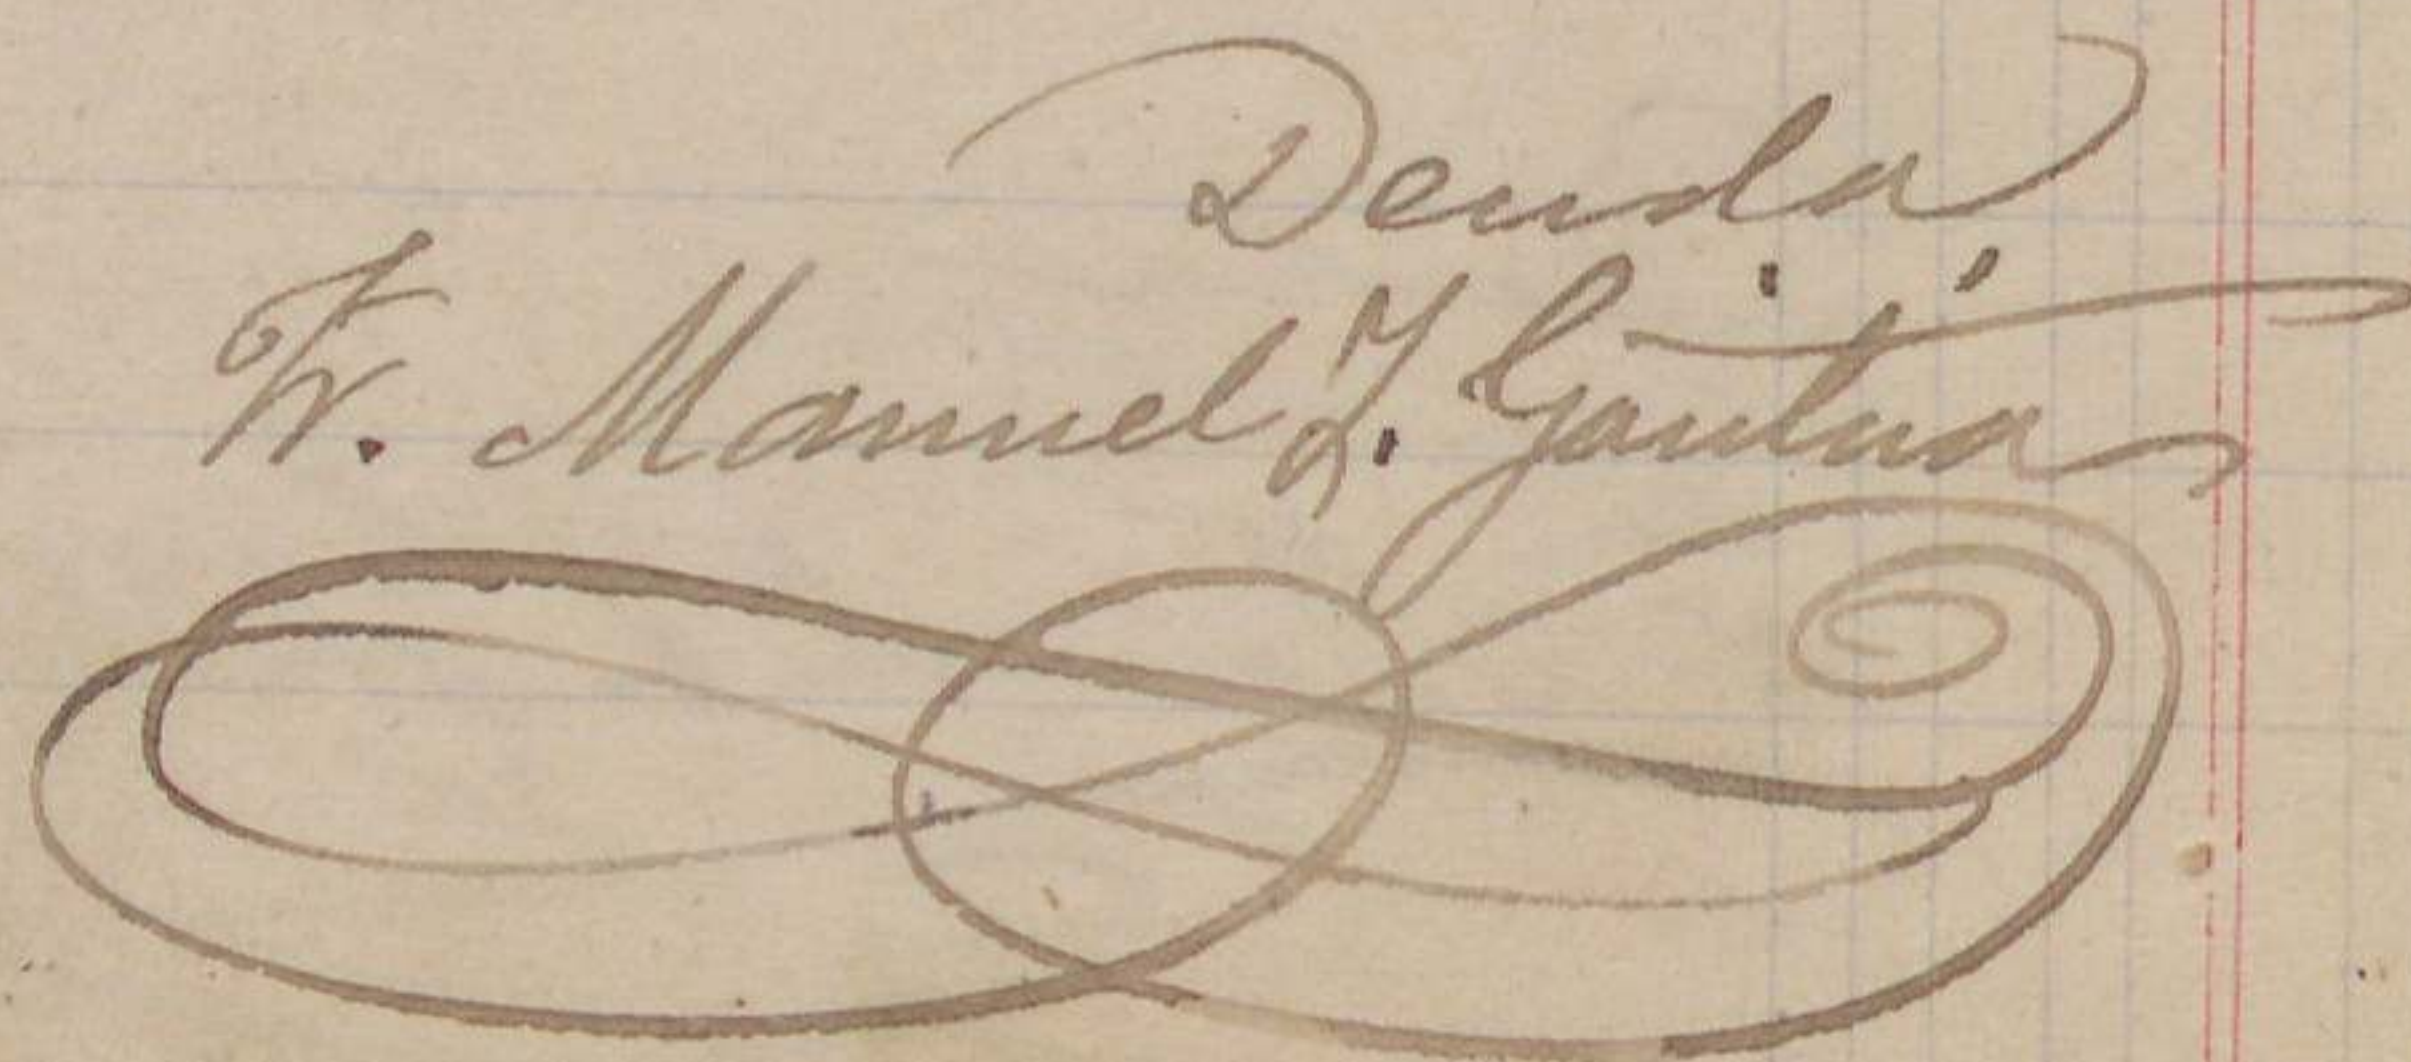 Deuda
Fr. Manuel F. Gautua